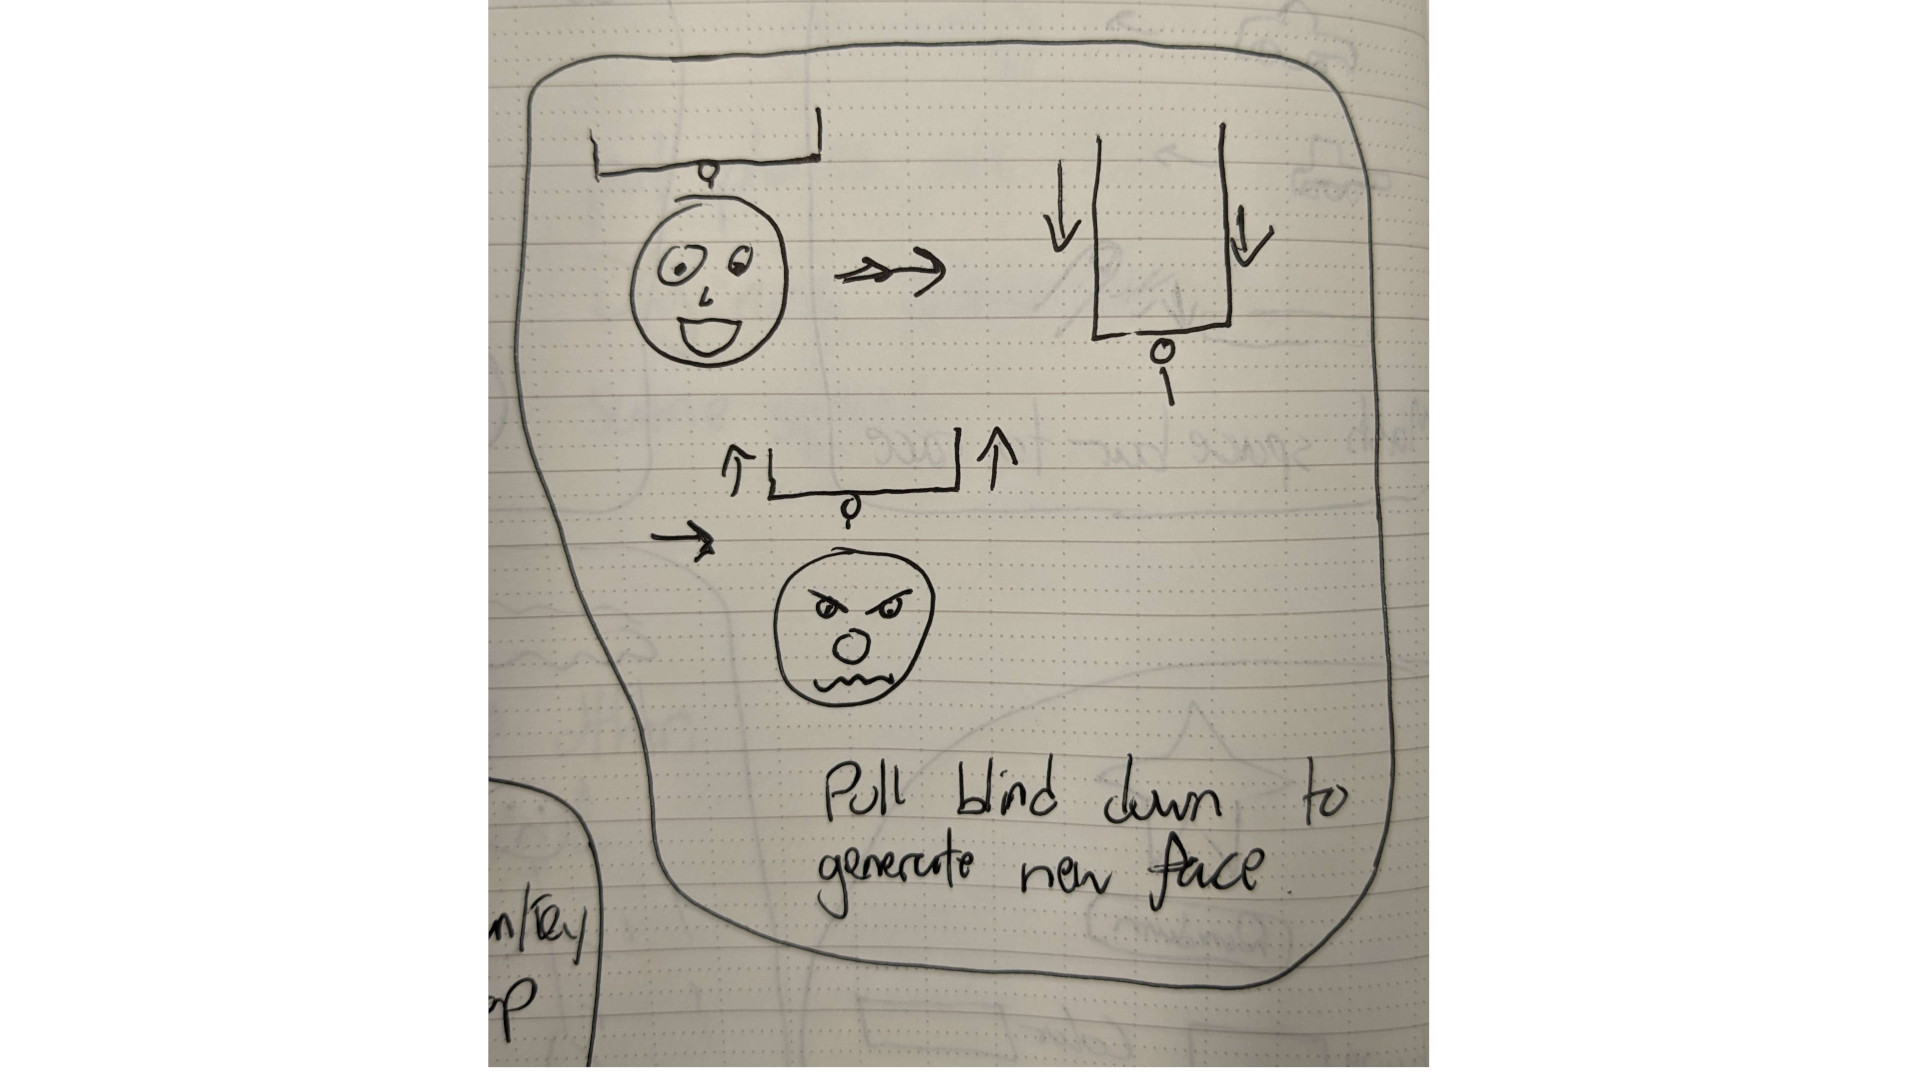 Pull blind down to
generate new face.